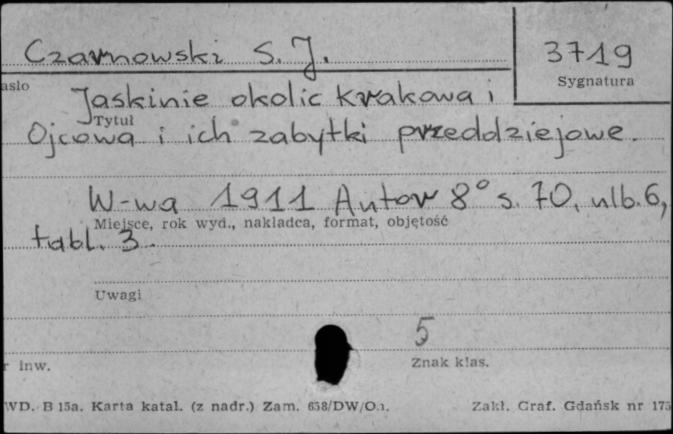 Czarnowski S. J.
3719
asło
Sygnatura
Jaskinie okolic Krakowa i
Tytuł
Ojcowa i ich zabytki przeddziejowe.
W-wa 1911 Autor 8° s. 70, nlb. 6,
Miejsce, rok wyd., nakładca, format, objętość
tabl. 3.
Uwagi
5
r inw.
Znak klas.
WD. B 15a. Karta katal. (z nadr.) Zam. 658/DW/On.
Zakł. Graf. Gdańsk nr 175